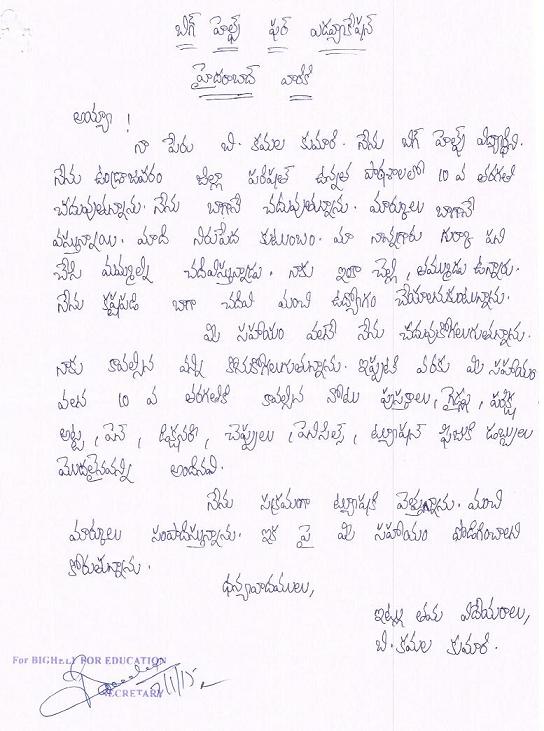 బిగ్ హెల్ప్ ఫర్ ఎడ్యుకేషన్
హైదరాబాద్ వారికి
అయ్యా !
నా పేరు బి. కమల కుమారి. నేను బిగ్ హెల్ప్ విద్యార్థిని.
నేను ఉండ్రాజవరం జిల్లా పరిషత్ ఉన్నత పాఠశాలలో 10 వ తరగతి
చదువుతున్నాను. నేను బాగానే చదువుతున్నాను. మార్కులు బాగానే
వస్తున్నాయి. మాది నిరుపేద కుటుంబం. మా నాన్నగారు గుర్ఖా పని
చేసి మమ్మల్ని చదివిస్తున్నాడు. నాకు ఇంకా చెల్లి, తమ్ముడు ఉన్నారు.
నేను కష్టపడి బాగా చదివి మంచి ఉద్యోగం చేయాలనుకుంటున్నాను.
మీ సహాయం వలనే నేను చదువుకోగలుగుతున్నాను.
నాకు కావల్సిన వన్నీ కొనుకోగలుగుతున్నాను. ఇప్పటి వరకు మీ సహాయం
వలన 10 వ తరగతికి కావల్సిన నోటు పుస్తకాలు, గైడ్లు, పరీక్ష
అట్ట, పెన్, డిక్షనరీ, చెప్పులు, పెన్సిల్స్, ట్యూషన్ ఫీజుకి డబ్బులు
మొదలైనవన్నీ అందినవి.
నేను సక్రమంగా ట్యూషన్‌కి వెళ్తున్నాను. మంచి
మార్కులు సంపాదిస్తున్నాను. ఇక పై మీ సహాయం పొడిగించాలని
కోరుతున్నాను.
ధన్యవాదములు,
ఇట్లు తమ విదేయరాలు,
బి. కమల కుమారి.
For BIGHELP FOR EDUCATION
SECRETARY